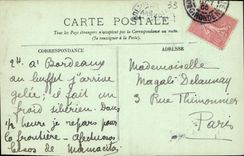 CARTE POSTALE
Tous les pays étrangers n'acceptent pas la Correspondance au recto.
(Se renseigner à la Poste).
CORRESPONDANCE
ADRESSE
2h. A Bordeaux
au buffet j'arrive
gelée, il fait un
froid sibérien. Dans
½ heure je repars pour
la frontière. Afectuosos
besos de Mamacita
Mademoiselle
Magali Delaunay
3 Rue Thimonnier
Paris